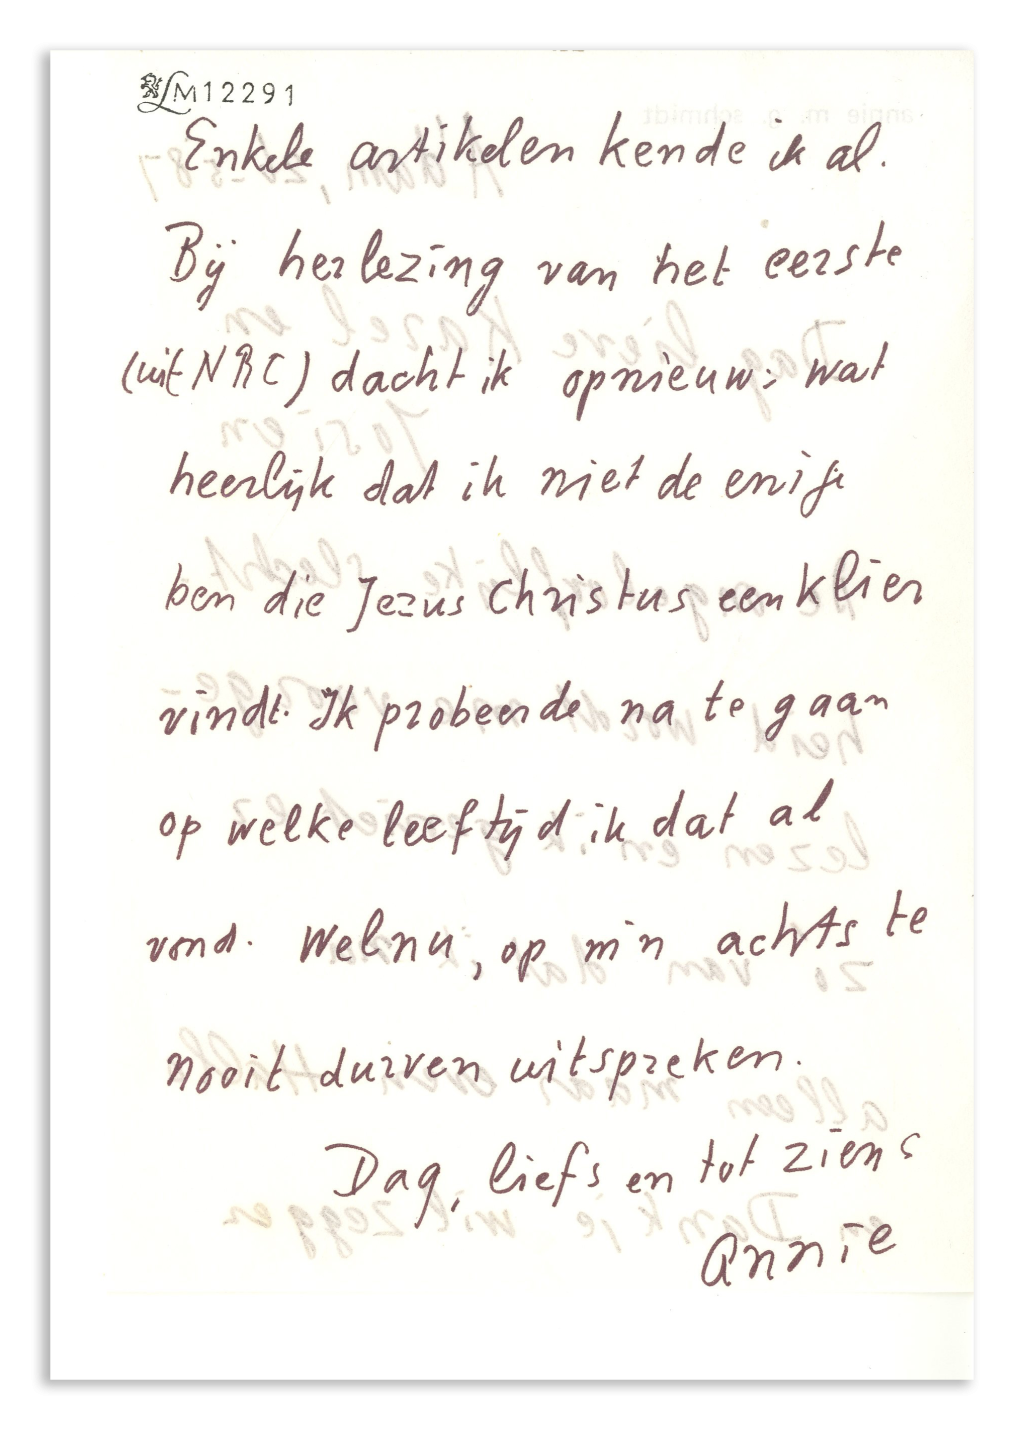 LM12291
Enkele artikelen kende ik al.
Bij herlezing van het eerste
(uit NRC) dacht ik opnieuw: wat
heerlijk dat ik niet de enige
ben die Jezus Christus een klier
vindt. Ik probeerde na te gaan
op welke leeftijd ik dat al
vond. Welnu, op m'n achtste
nooit durven uitspreken.
Dag, liefs en tot ziens
Annie